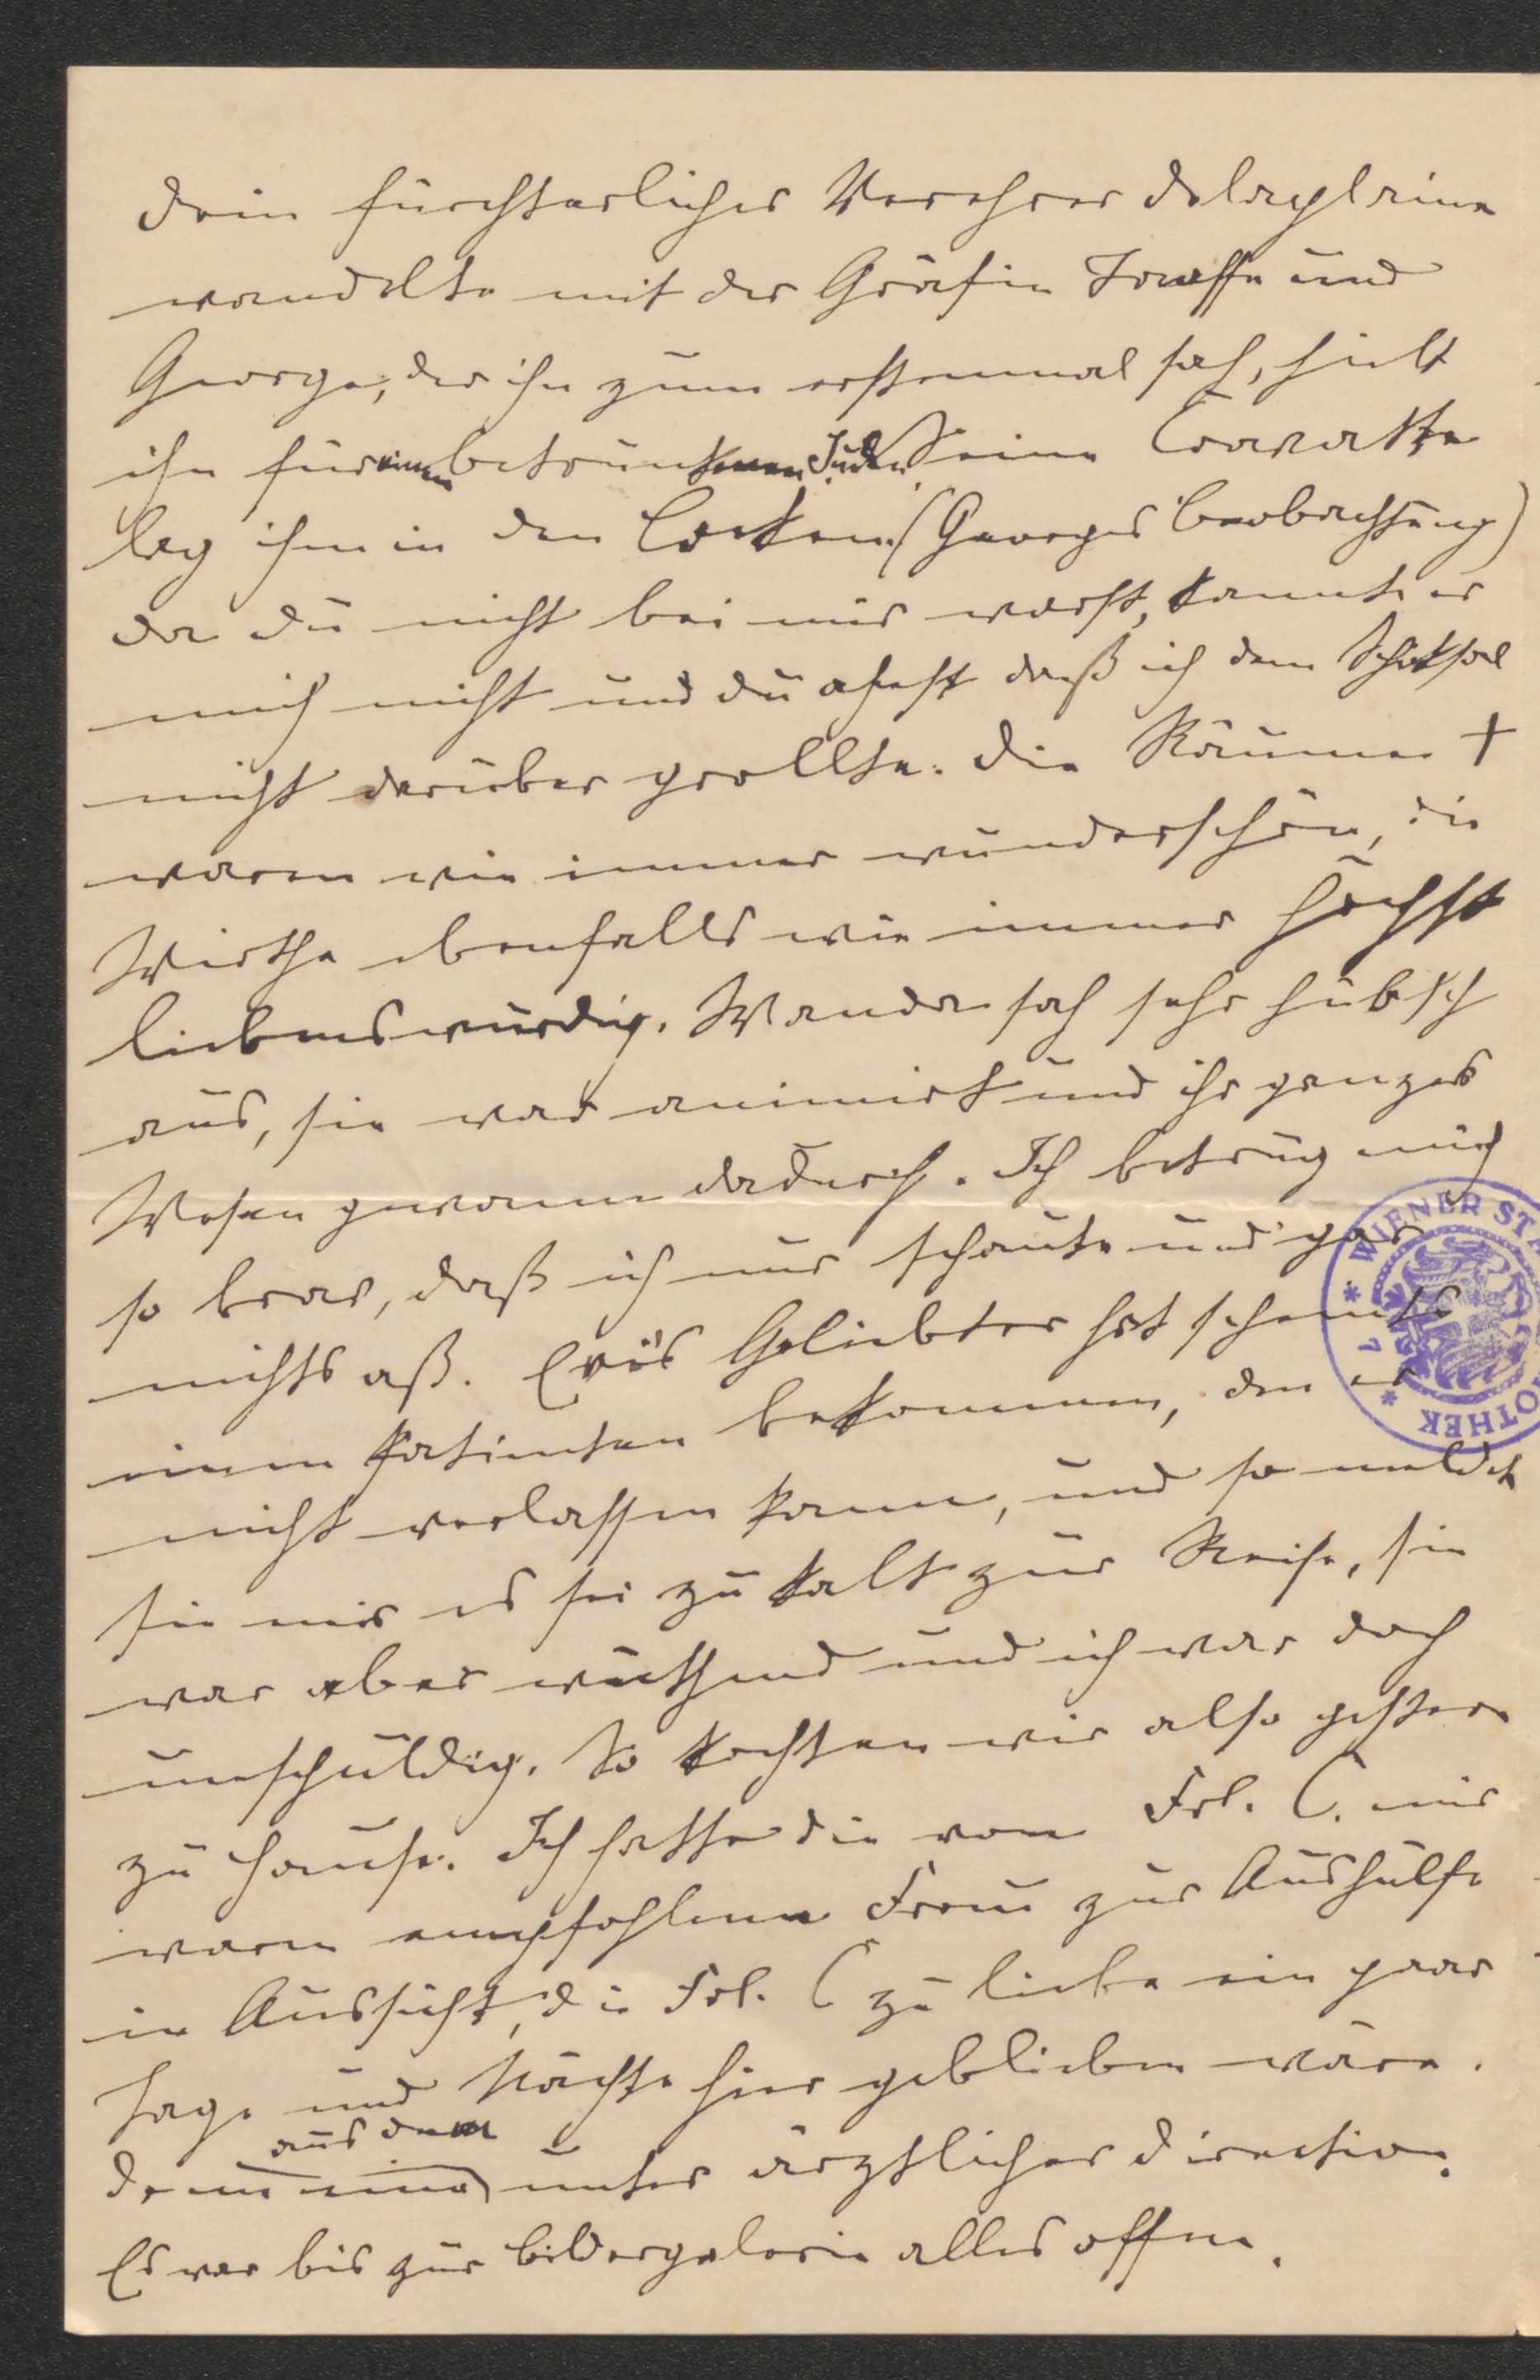 Dein fürchterlicher Verehrer Delaplaine
wandelte mit der Gräfin Taaffe und
George, der ihn zum erstenmal sah, hielt
ihn für einen betrunkenen Juden. Seine Cravatte
lag ihm in den Locken. (Georges Beobachtung)
da du nicht bei mir warst, kannte er
mich nicht und du ahnst daß ich dem Schiksal
nicht darüber grollte. Die Räume +
waren wie immer wunderschön, die
Wirthe ebenfalls wie immer höchst
liebenswürdig. Wanda sah sehr hübsch
aus, sie war animirt und ihr ganzes
Wesen gewann dadurch. Ich betrug mich
so brav, daß ich nur schaute und gar
nichts aß. Evis Geliebter hat scheints
einen Patienten bekommen, den er
nicht verlassen kann, und so meldet
sie mir es sei zu kalt zur Reise, sie
war aber wüthend und ich war doch
unschuldig. So kochten wir also gestern
zu Hause. Ich hatte die von Frl. C. mir
warm empfohlene Frau zur Aushülfe
in Aussicht, die Frl. C zu liebe ein paar
Tage und Nächte hier geblieben wäre.
aus dem
unter ärztlicher Direction.
Es war bis zur Bildergalerie alles offen.
WIENER ST
OTHEK